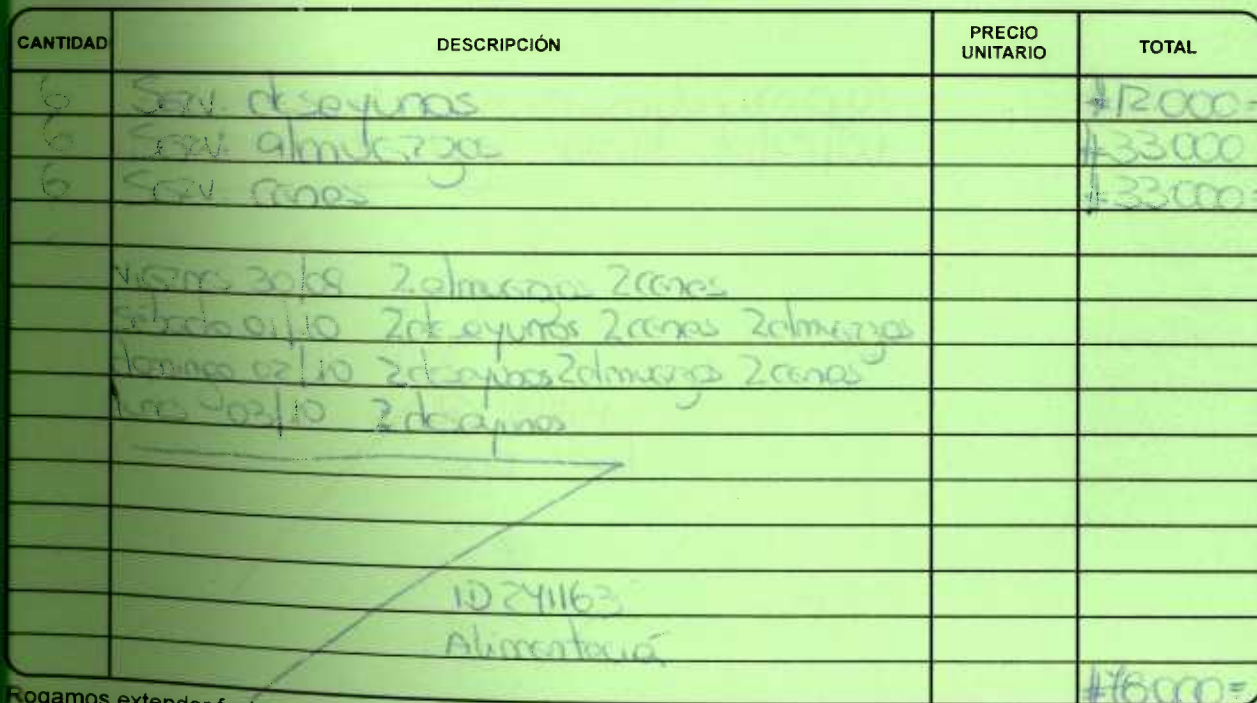 CANTIDAD DESCRIPCIÓN PRECIO UNITARIO TOTAL
6 Serv. desayunos #12000=
6 Serv. almuerzos #33000
6 Serv. cenas #33000=
Viernes 30/09 2 almuerzos 2 cenas
Sábado 01/10 2 desayunos 2 cenas 2 almuerzos
domingo 02/10 2 desayunos 2 almuerzos 2 cenas
lunes 03/10 2 desayunos
ID 241163
Alimentació
#78000=
Rogamos extender